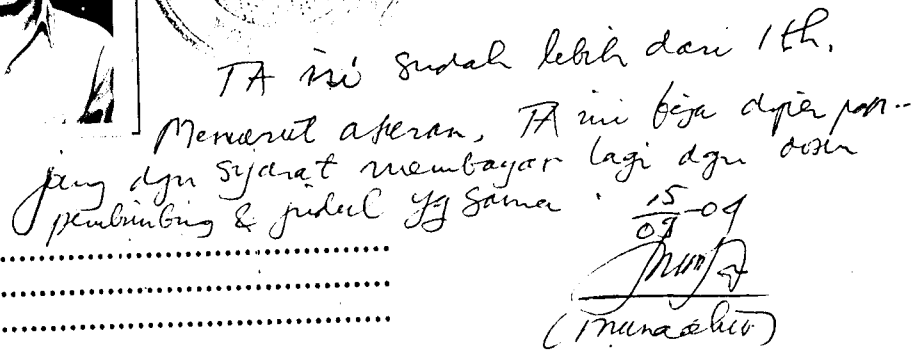 TA ini sudah lebih dari 1 th.
Menurut aturan, TA ini bisa diperpan-
jang dgn syarat membayar lagi dgn dosen
pembimbing & judul yg sama.
15
09-04